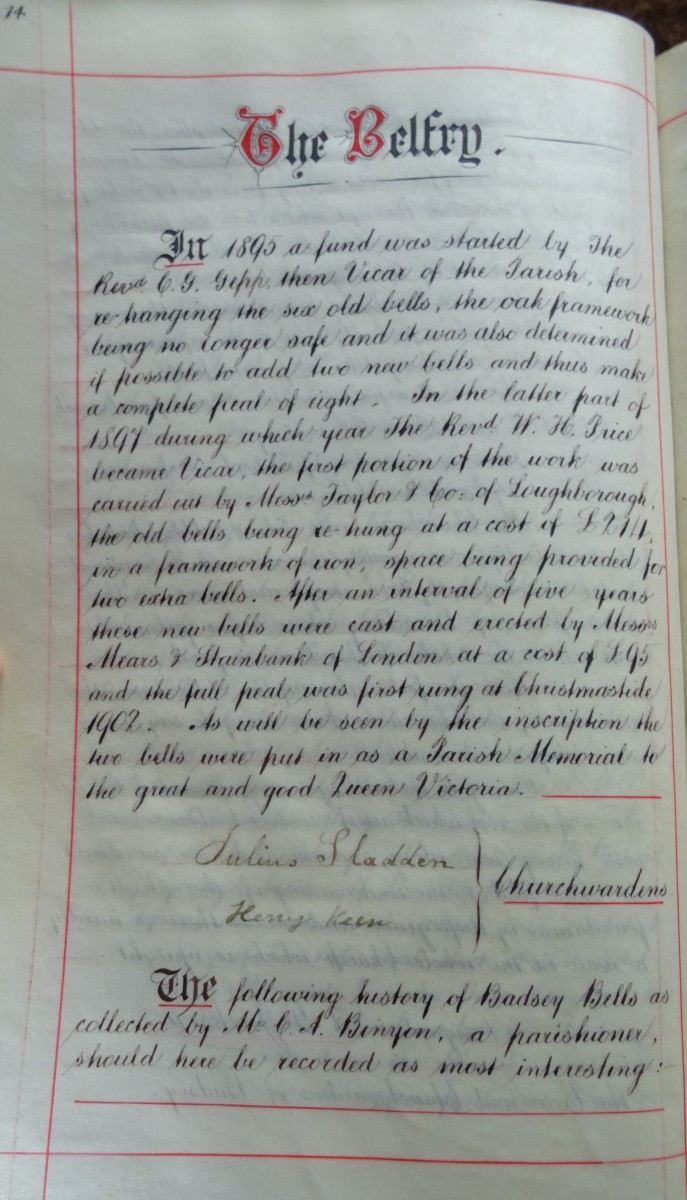 14.
The Belfry.
In 1895 a fund was started by The
Revd. C. G. Gepp, then Vicar of the Parish, for
re-hanging the six old bells, the oak framework
being no longer safe and it was also determined
if possible to add two new bells and thus make
a complete peal of eight. In the latter part of
1897 during which year The Revd. W. H. Price
became Vicar, the first portion of the work was
carried out by Messrs Taylor & Co: of Loughborough,
the old bells being re-hung at a cost of £214,
in a framework of iron, space being provided for
two extra bells. After an interval of five years
these new bells were cast and erected by Messrs
Mears & Stainbank of London at a cost of £95
and the full peal was first rung at Christmastide
1902. As will be seen by the inscription the
two bells were put in as a Parish Memorial to
the great and good Queen Victoria.
Julius Sladden
Churchwardens
Henry Keen
The following history of Badsey Bells as
collected by Mr. C. A. Binyon, a parishioner,
should here be recorded as most interesting:-